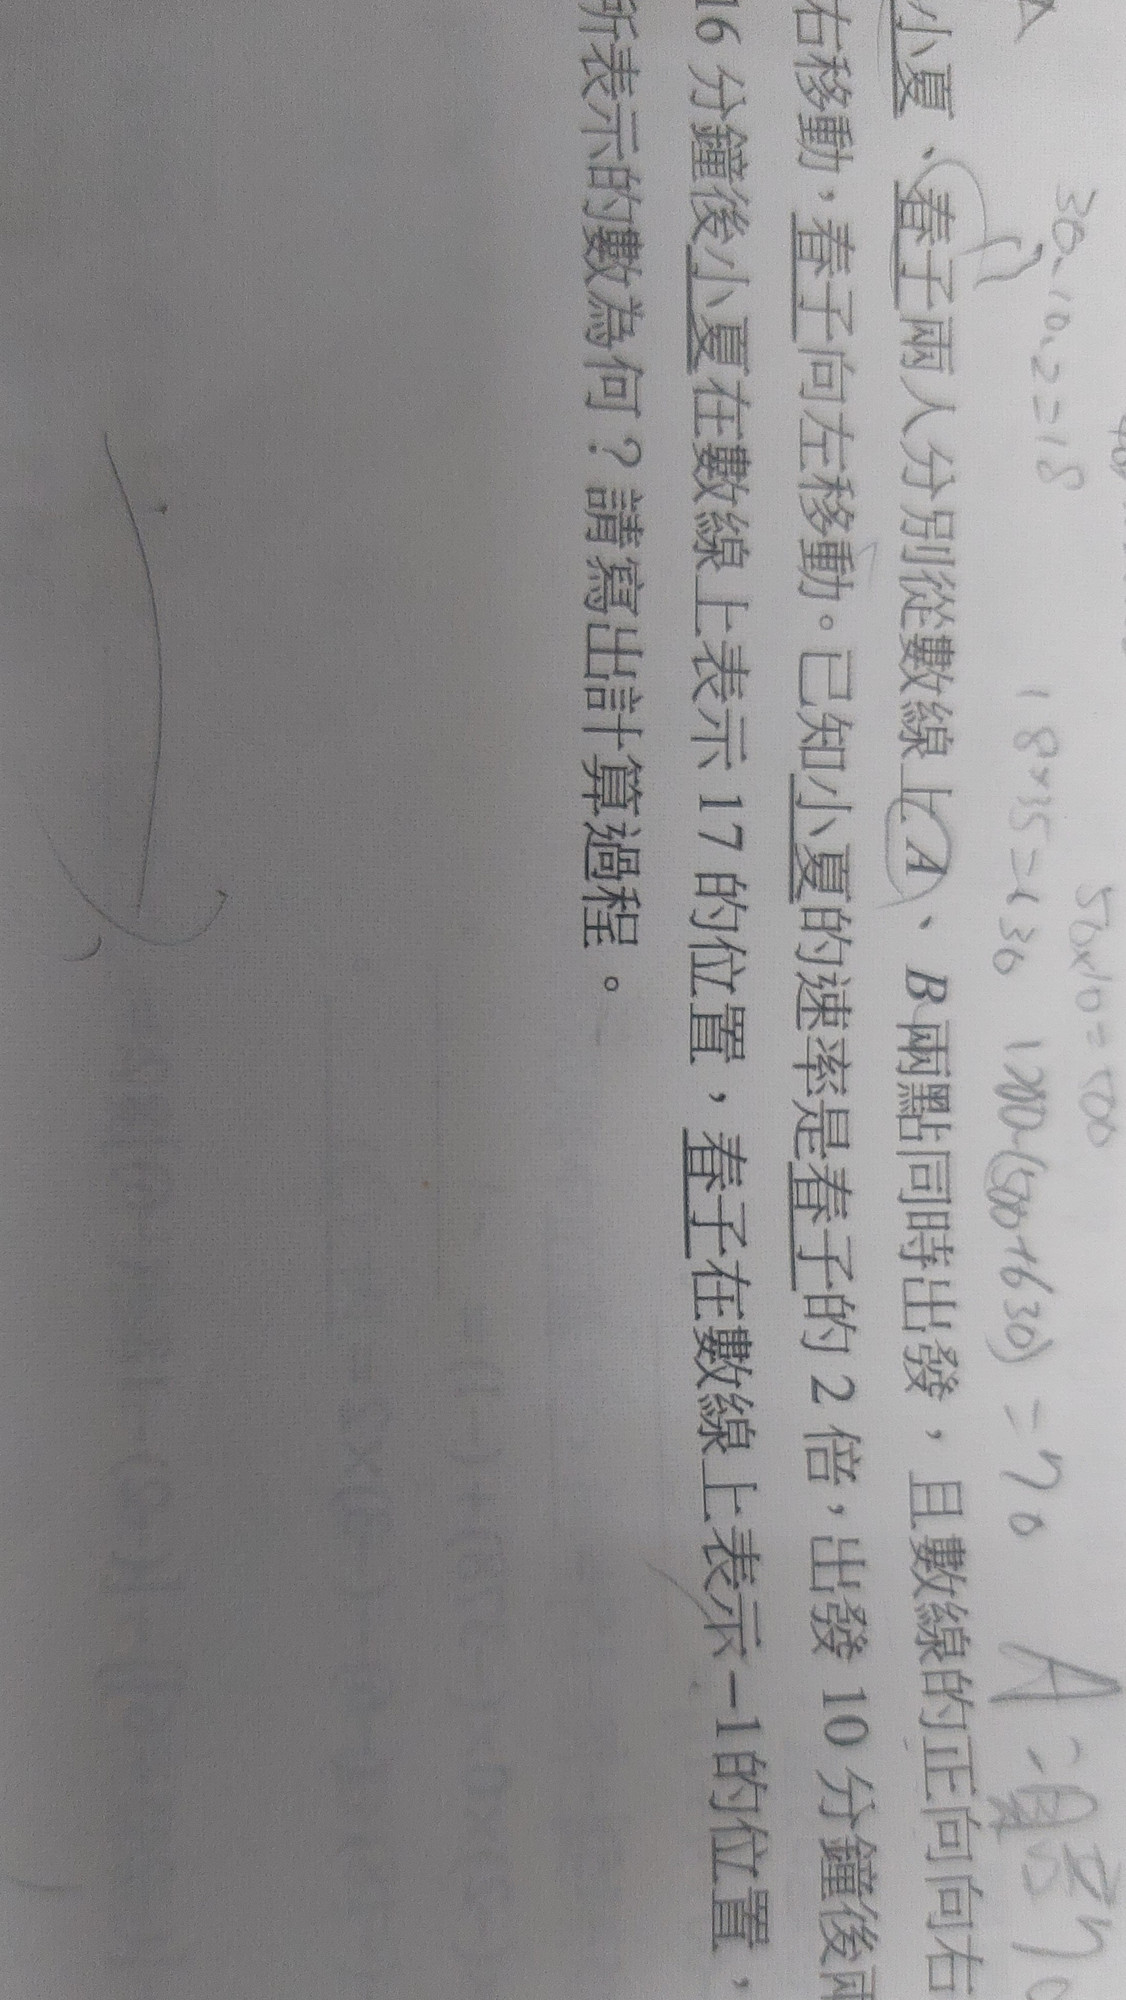 30.10.2=18
56×10=500
18×35=630 1200-(500+630)=70 A:還有70
小夏、春子兩人分別從數線上A、B兩點同時出發，且數線的正向向右
右移動，春子向左移動。已知小夏的速率是春子的2倍，出發10分鐘後
16分鐘後小夏在數線上表示17的位置，春子在數線上表示-1的位置，
所表示的數為何？請寫出計算過程。